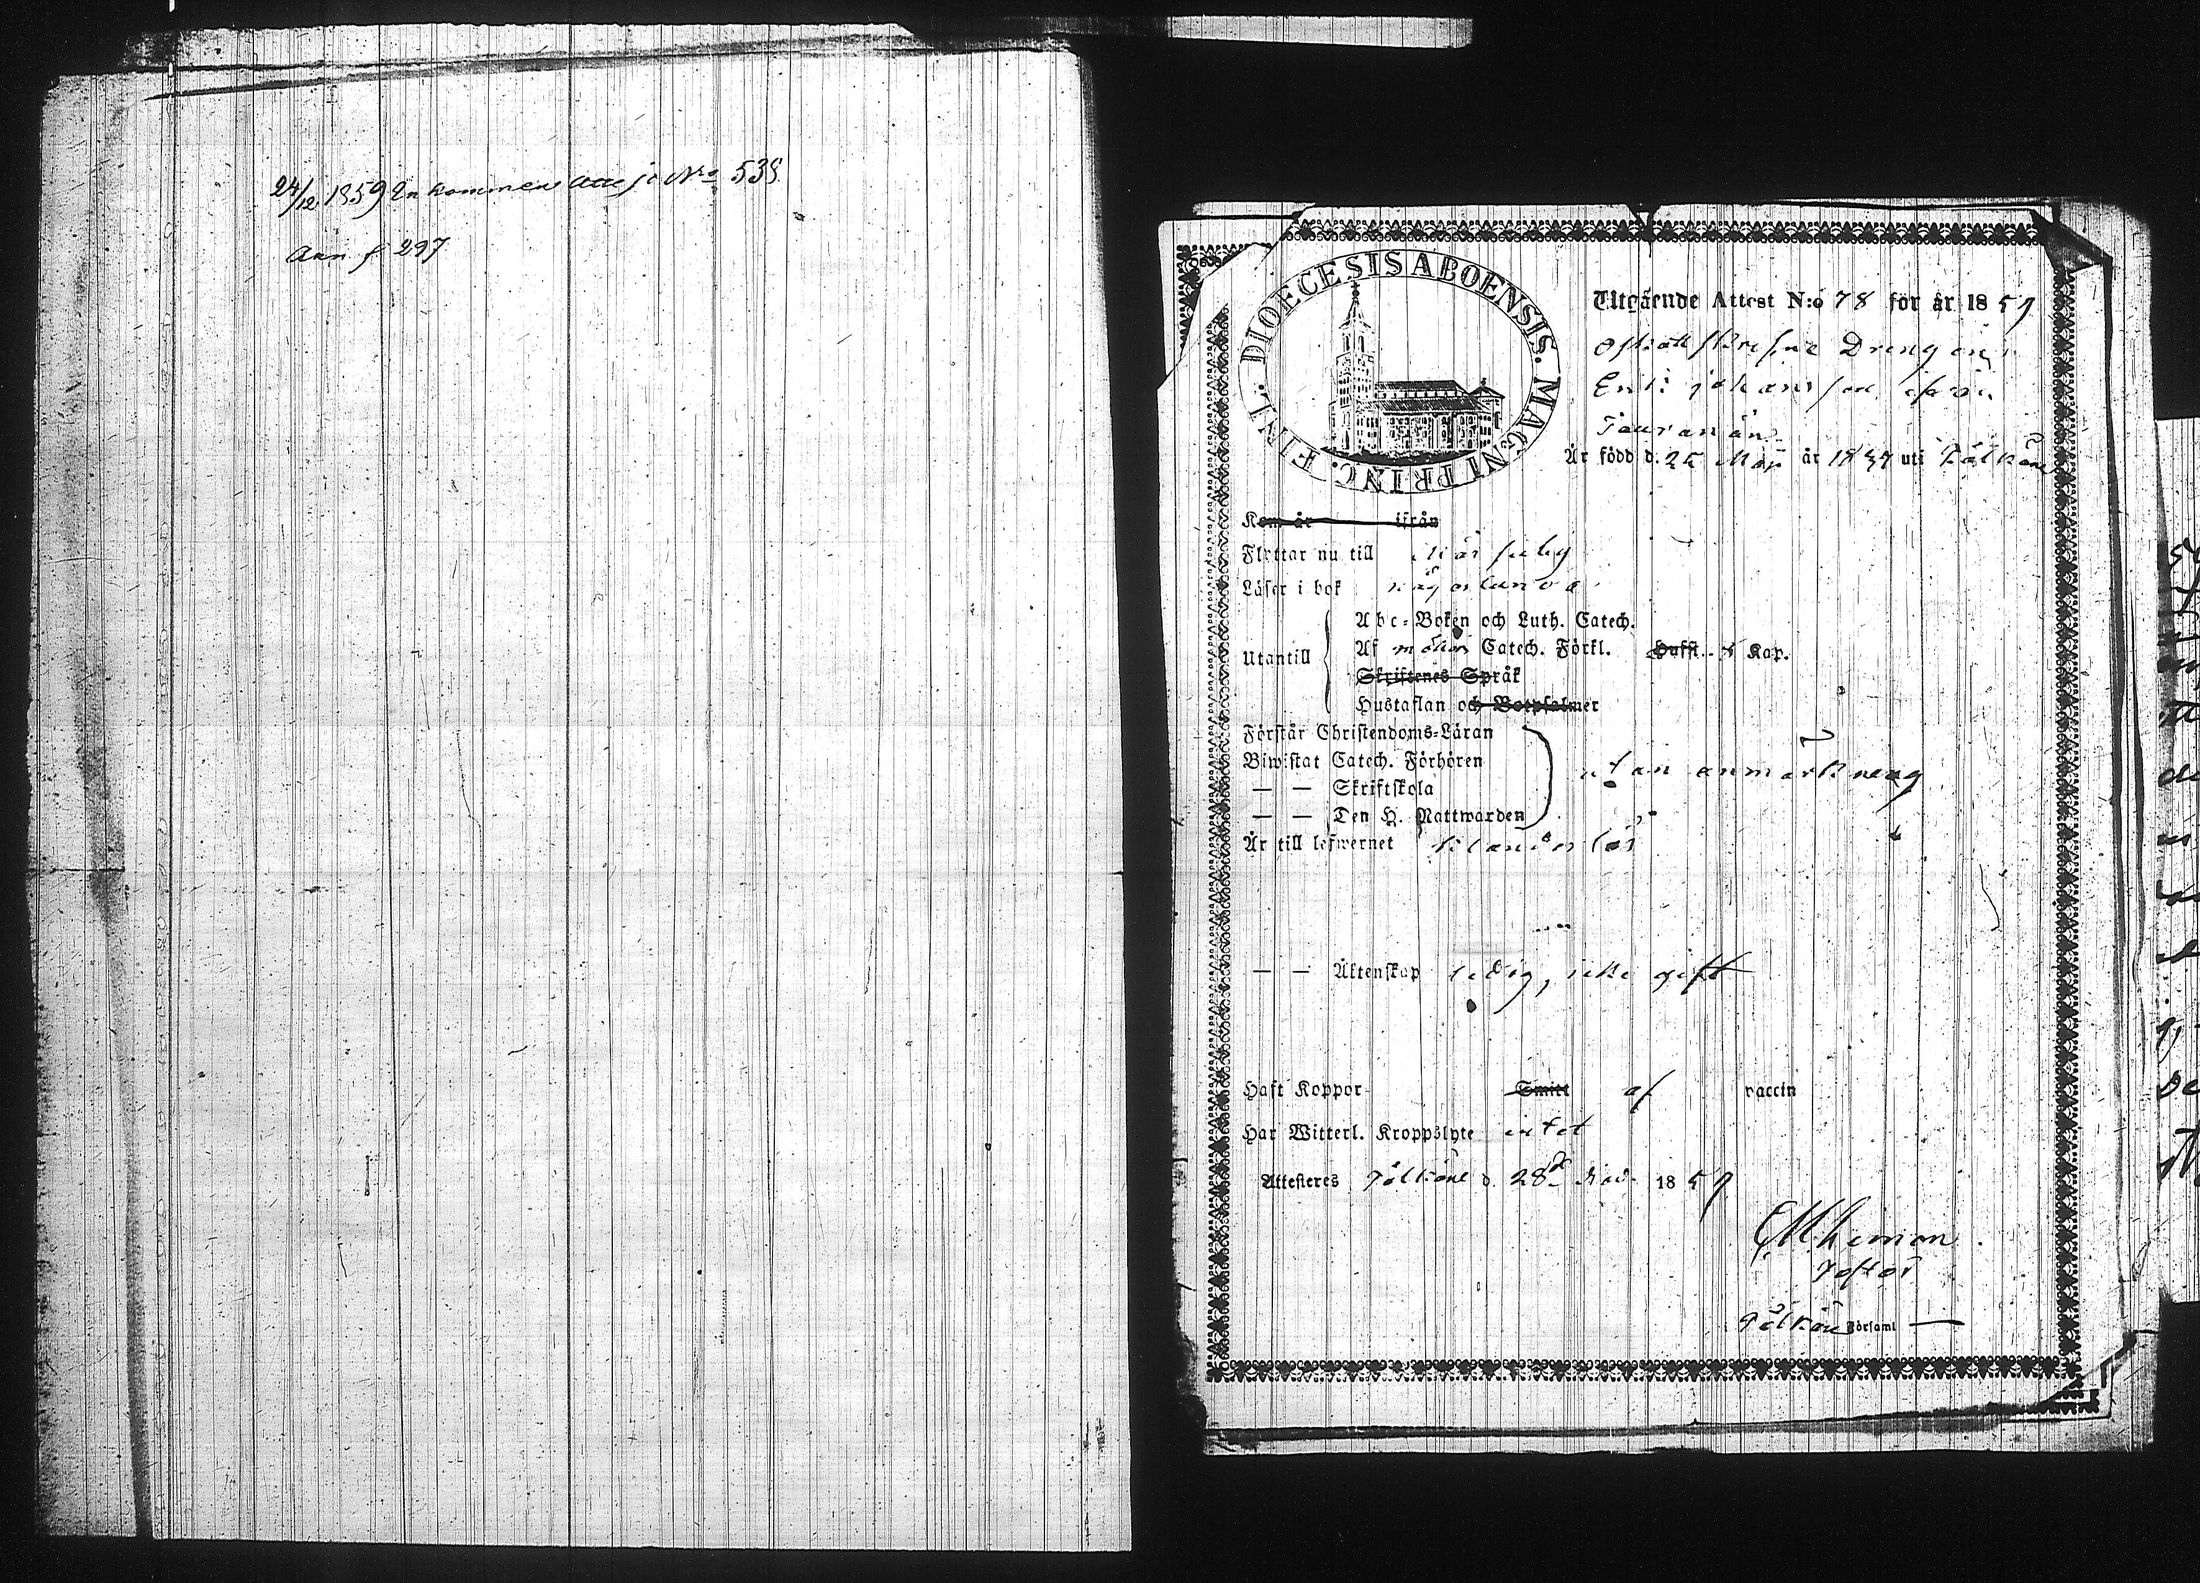 24/12 1859 Inkommen Attest Nro 538
Ann f 297
DIOECESIS ABOENSIS. MAGNI PRINC. FINL.
Utgående Attest N:o 78 för år 1859
Drengen
Erik Johansson
Är född d. 25 Maji år 18 uti Pälkäne
Kom år ifrån
Flyttar nu till
Läser i bok någorlunda
Abc-Boken och Luth. Catech.
Utantill
Af Catech. Förkl. Hufst. 8 Kap.
Skriftenes Språk
Hustaflan och Botpsalmer
Förstår Christendoms-Läran
Biwistat Catech. Förhören
utan anmärkning
— — Skriftskola
— — Den H. Nattwarden
Är till lefwernet klanderlös
— — Äktenskap ledig, icke gift
Haft Koppor Smitt af vaccin
Har Witterl. Kroppslyte intet
Attesteres Pälkäne d. 28 Nov. 1859
Pälkäne Församl